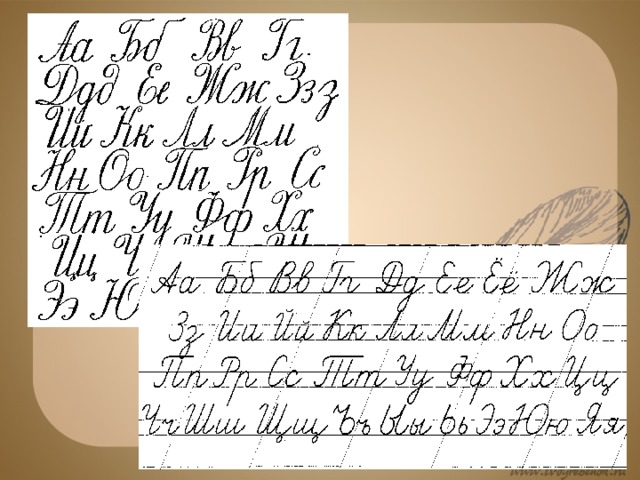 Аа Бб Вв Гг.
Ддд Ее Жж Ззз
Ии Кк Лл Мм
Нн Оо Пп Рр Сс
Тт Уу Фф Хх
Цц Ч
Ээ Ю
Аа Бб Вв Гг Дд Ее Ёё Жж
Зз Ии Йй Кк Лл Мм Нн Оо
Пп Рр Сс Тт Уу Фф Хх Цц
Чч Шш Щщ Ъъ Ыы Ьь Ээ Юю Яя